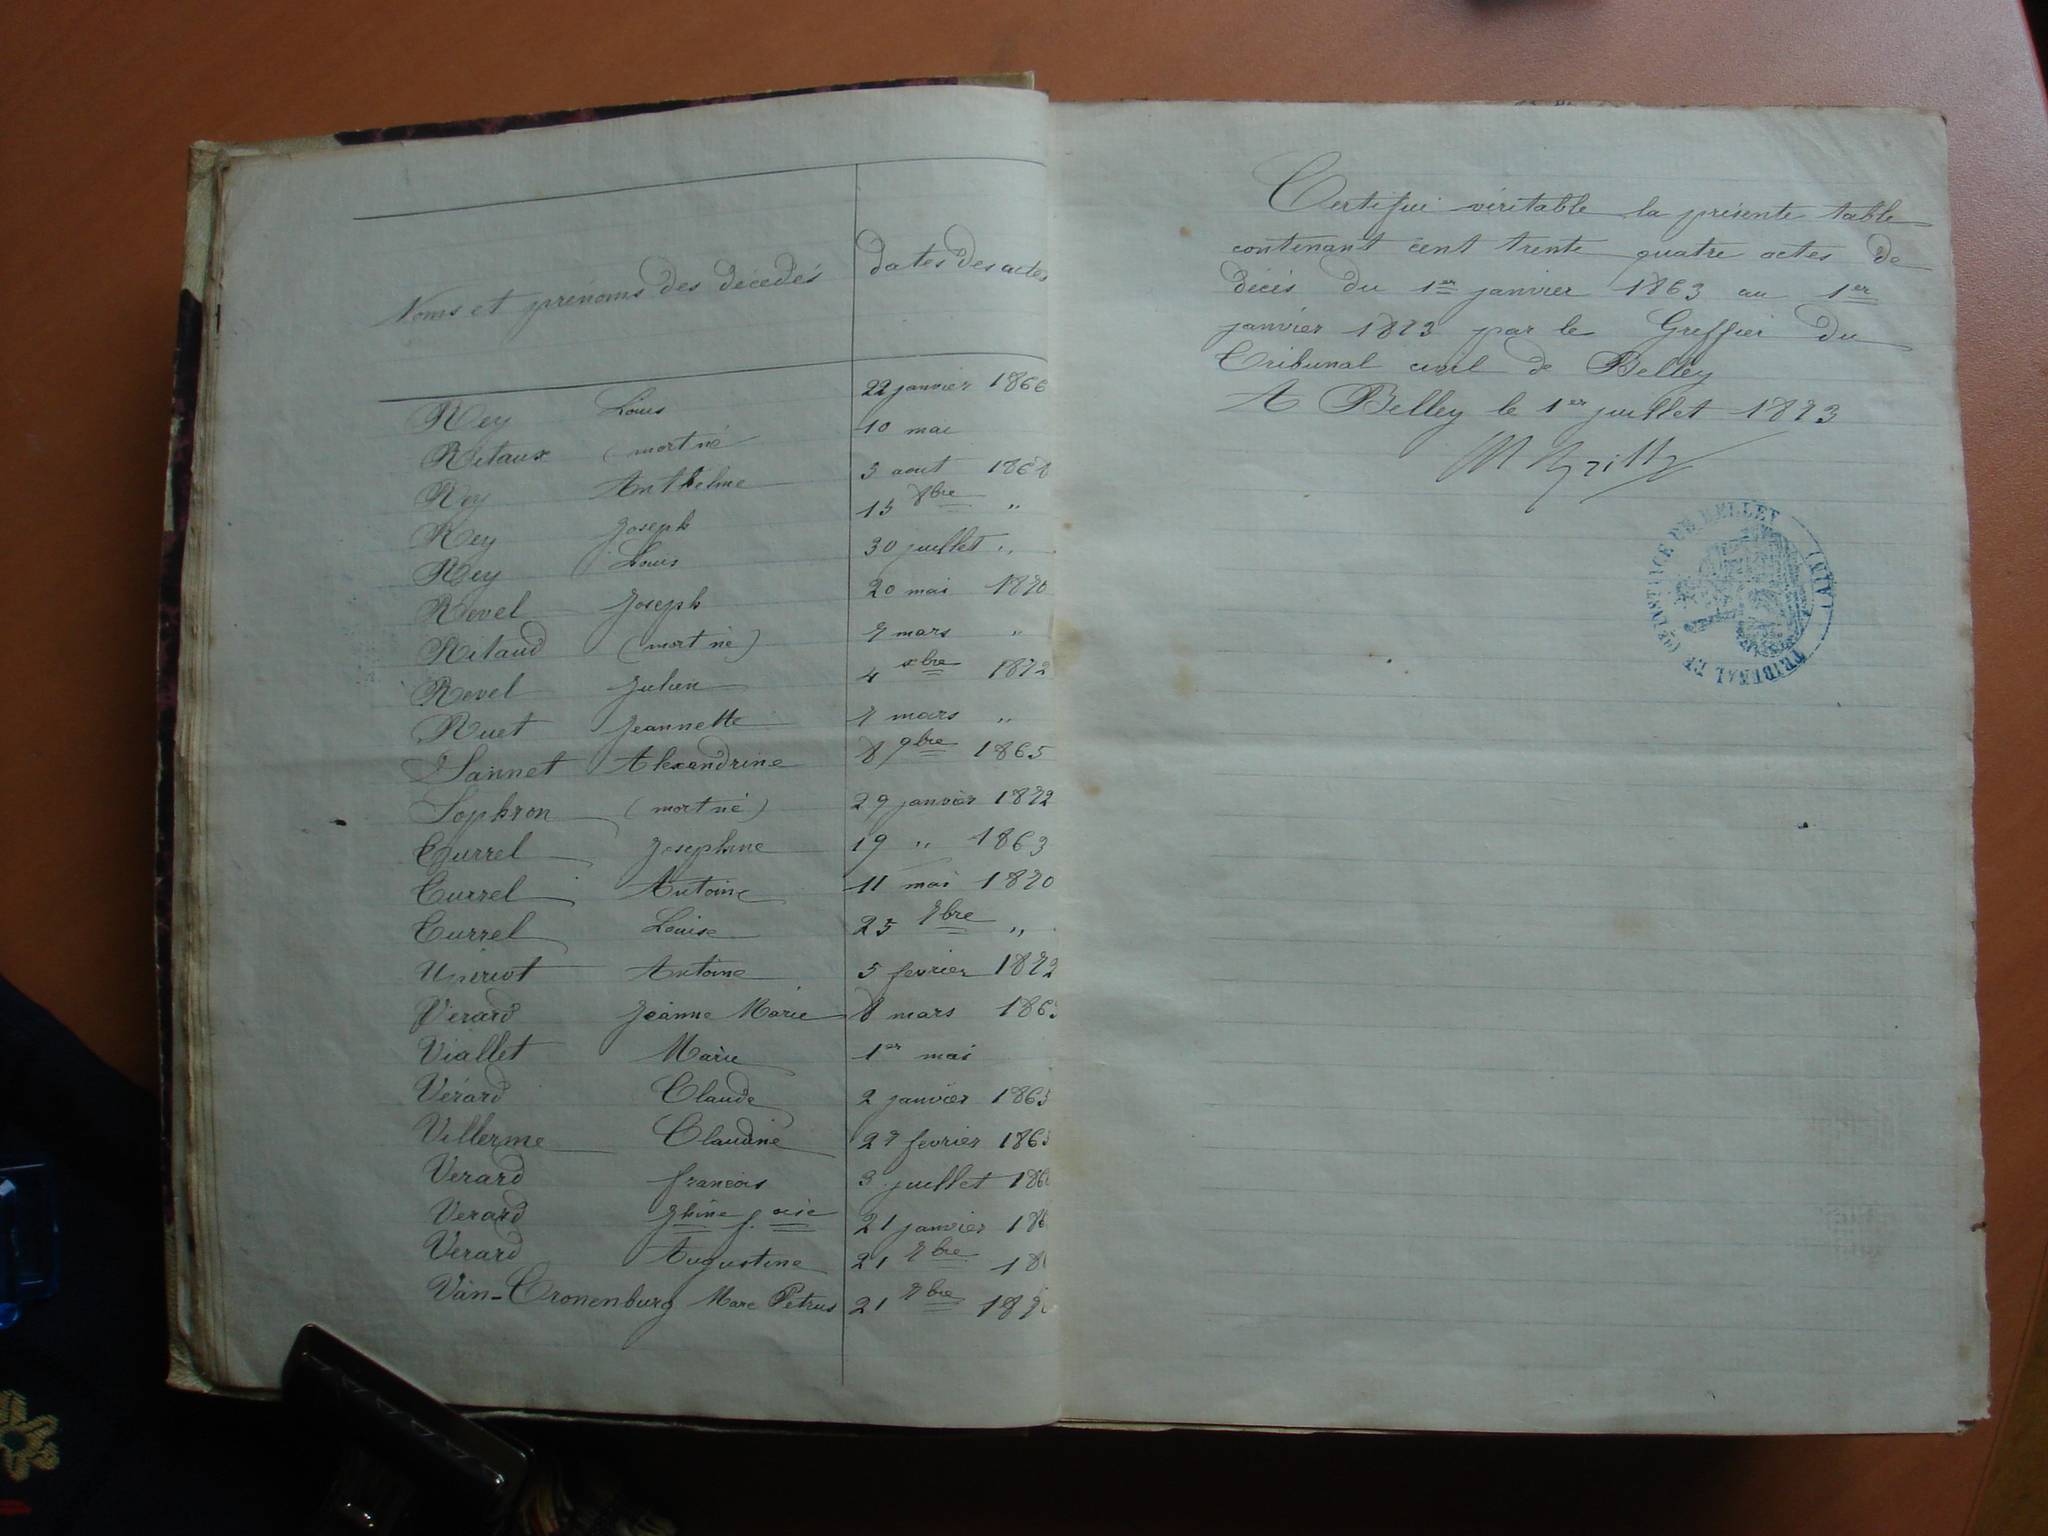 Noms et prénoms des décédés dates des actes
Rey Louis 22 janvier 1866
Ritaux (mort né 10 mai
Rey Anthelme 3 aout 1868
Rey Joseph 15 8bre "
Rey Louis 30 juillet "
Revel Joseph 20 mai 1870
Ritaud (mort né) 7 mars "
Revel Julien 4 xbre 1872
Ruet Jeannette 7 mars "
Sannet Alexandrine 8 9bre 1865
Sophron (mort né) 29 janvier 1872
Turrel Josephine 19 " 1863
Turrel Antoine 11 mai 1870
Turrel Louise 25 7bre "
Antoine 5 fevrier 1872
Verard Jeanne Marie 8 mars
Viallet Marie 1er mai
Vérard Claude 2 janvier 1865
Villerme Claudine 27 fevrier 1865
Verard francois 3 juillet
Verard Jhine f.oise 21 janvier
Verard Augustine 21 7bre
Van-Cronenburg Marc Petrus 21 7bre
Certifiée véritable la présente table
contenant cent trente quatre actes de
décés du 1er janvier 1863 au 1er
janvier 1873 par le Greffier du
Tribunal civil de Belley
A Belley le 1er juillet 1873
TRIBUNAL DE 1RE INSTANCE DE BELLEY (AIN)